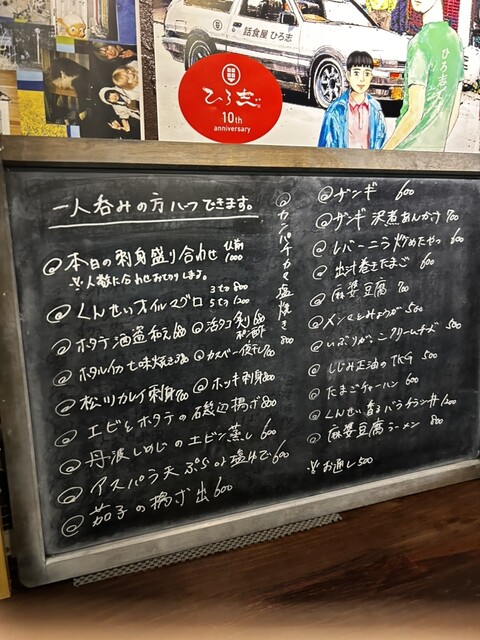 話食屋 ひろ志
ひろ志
ひろ志
10th
anniversary
一人呑みの方ハーフできます。
@本日の刺身盛り合わせ 1人前 1000
※人数に合わせお作りします。
@くんせいオイルマグロ 3コ 800 5コ 1200
@ホタテ酒盗和え 680 @活タコ刺 ポン酢 680
@ホタルイカ七味焼き 780 @カスベ一夜干し 700
@松川カレイ刺身 700 @ホッキ刺身 800
@エビとホタテの磯辺揚げ 800
@丹波しめじの土ビン蒸し 600
@アスパラ天ぷら or 塩ゆで 600
@茄子の揚げ出 600
@カンパチカマ塩焼き 800
@ザンギ 600
@ザンギ 沢煮あんかけ 700
@レバーニラ炒めたやつ 600
@出汁巻きたまご 600
@麻婆豆腐 700
@メンマとみょうが 500
@いぶりがっこクリームチーズ 500
@しじみ正油のTKG 500
@たまごチャーハン 600
@くんせい香るバラチラシ丼 1200
@麻婆豆腐ラーメン 800
※お通し 500